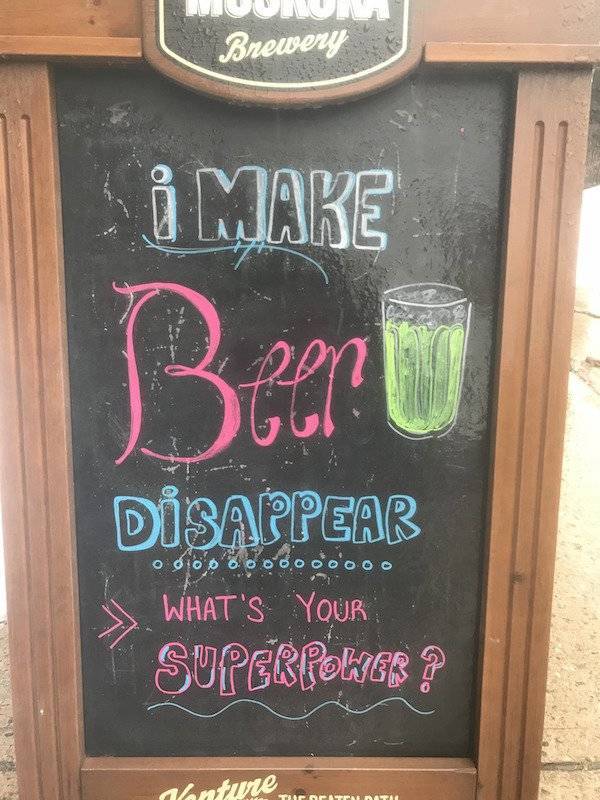 MUSKOKA
Brewery
i MAKE
Beer
DiSAPPEAR
WHAT'S YOUR
SUPERPOWER?
Venture
THE BEATEN PATH